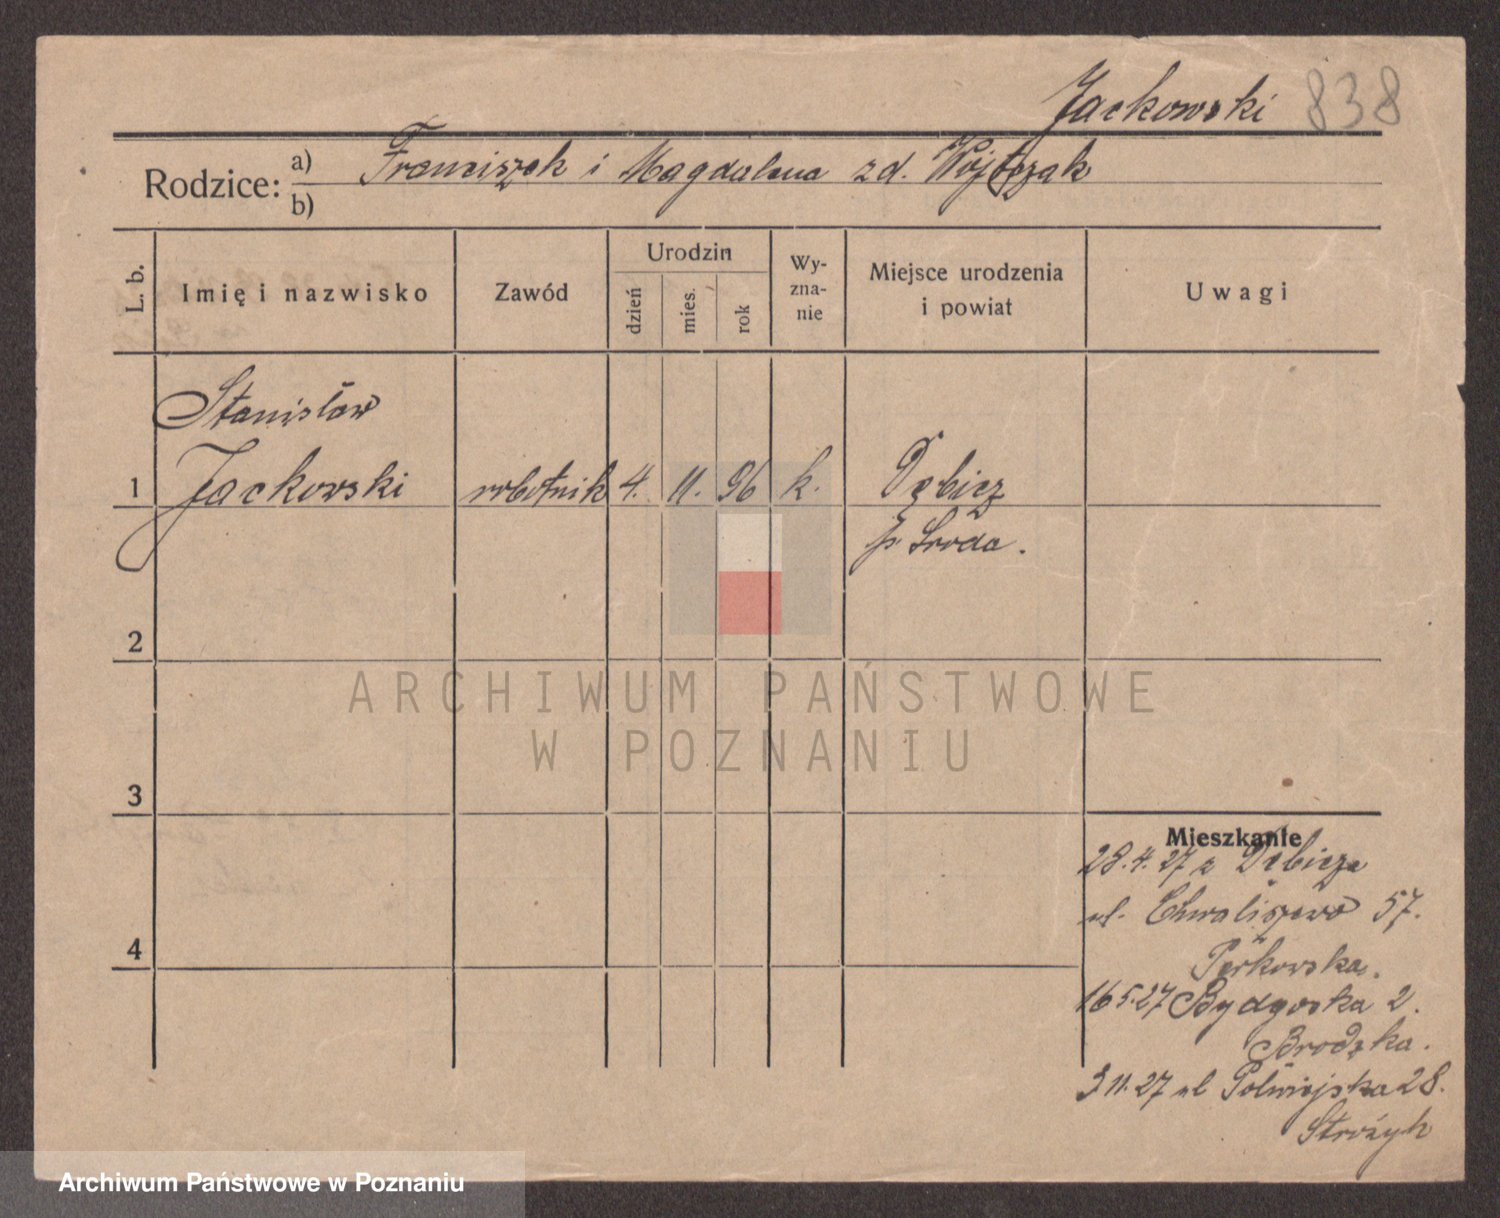 Jackowski 838
Rodzice: a) Franciszek i Magdalena zd. Wojtczak
b)
L. b.
Imię i nazwisko
Zawód
Urodzin
dzień
mies.
rok
Wy-
zna-
nie
Miejsce urodzenia
i powiat
Uwagi
Stanisław
1 Jackowski robotnik 4. 11. 96 k. Dębicz
p. Środa.
2
3
4
Mieszkanie
28.4.27 z Dębicza
ul. Chwaliszewo 57.
16 5.27 Bydgoska 2.
Brodzka.
3 11.27 ul Półwiejska 28.
Stróżyk
ARCHIWUM PAŃSTWOWE
W POZNANIU
Archiwum Państwowe w Poznaniu